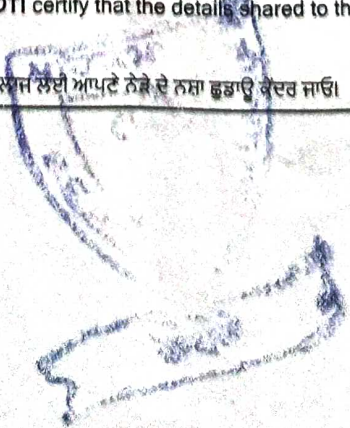 certify that the details shared to th
ਲਈ ਆਪਣੇ ਨੇੜੇ ਦੇ ਨਸ਼ਾ ਛੁਡਾਊ ਕੇਂਦਰ ਜਾਓ।